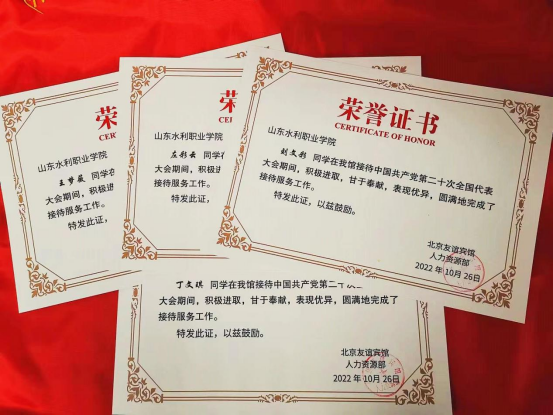 荣
CERT
山东水利职业学院
王梦薇 同学在
大会期间，积极
接待服务工作。
特发此证，
荣
CERTI
山东水利职业学院
左彩云 同学在
大会期间，积极
接待服务工作。
特发此证，
荣誉证书
CERTIFICATE OF HONOR
山东水利职业学院
刘文彩 同学在我馆接待中国共产党第二十次全国代表
大会期间，积极进取，甘于奉献，表现优异，圆满地完成了
接待服务工作。
特发此证，以兹鼓励。
北京友谊宾馆
人力资源部
2022年10月26日
丁文琪 同学在我馆接待中国共产党第二十次
大会期间，积极进取，甘于奉献，表现优异，圆满地完成了
接待服务工作。
特发此证，以兹鼓励。
北京友谊宾馆
人力资源部
2022年10月26日